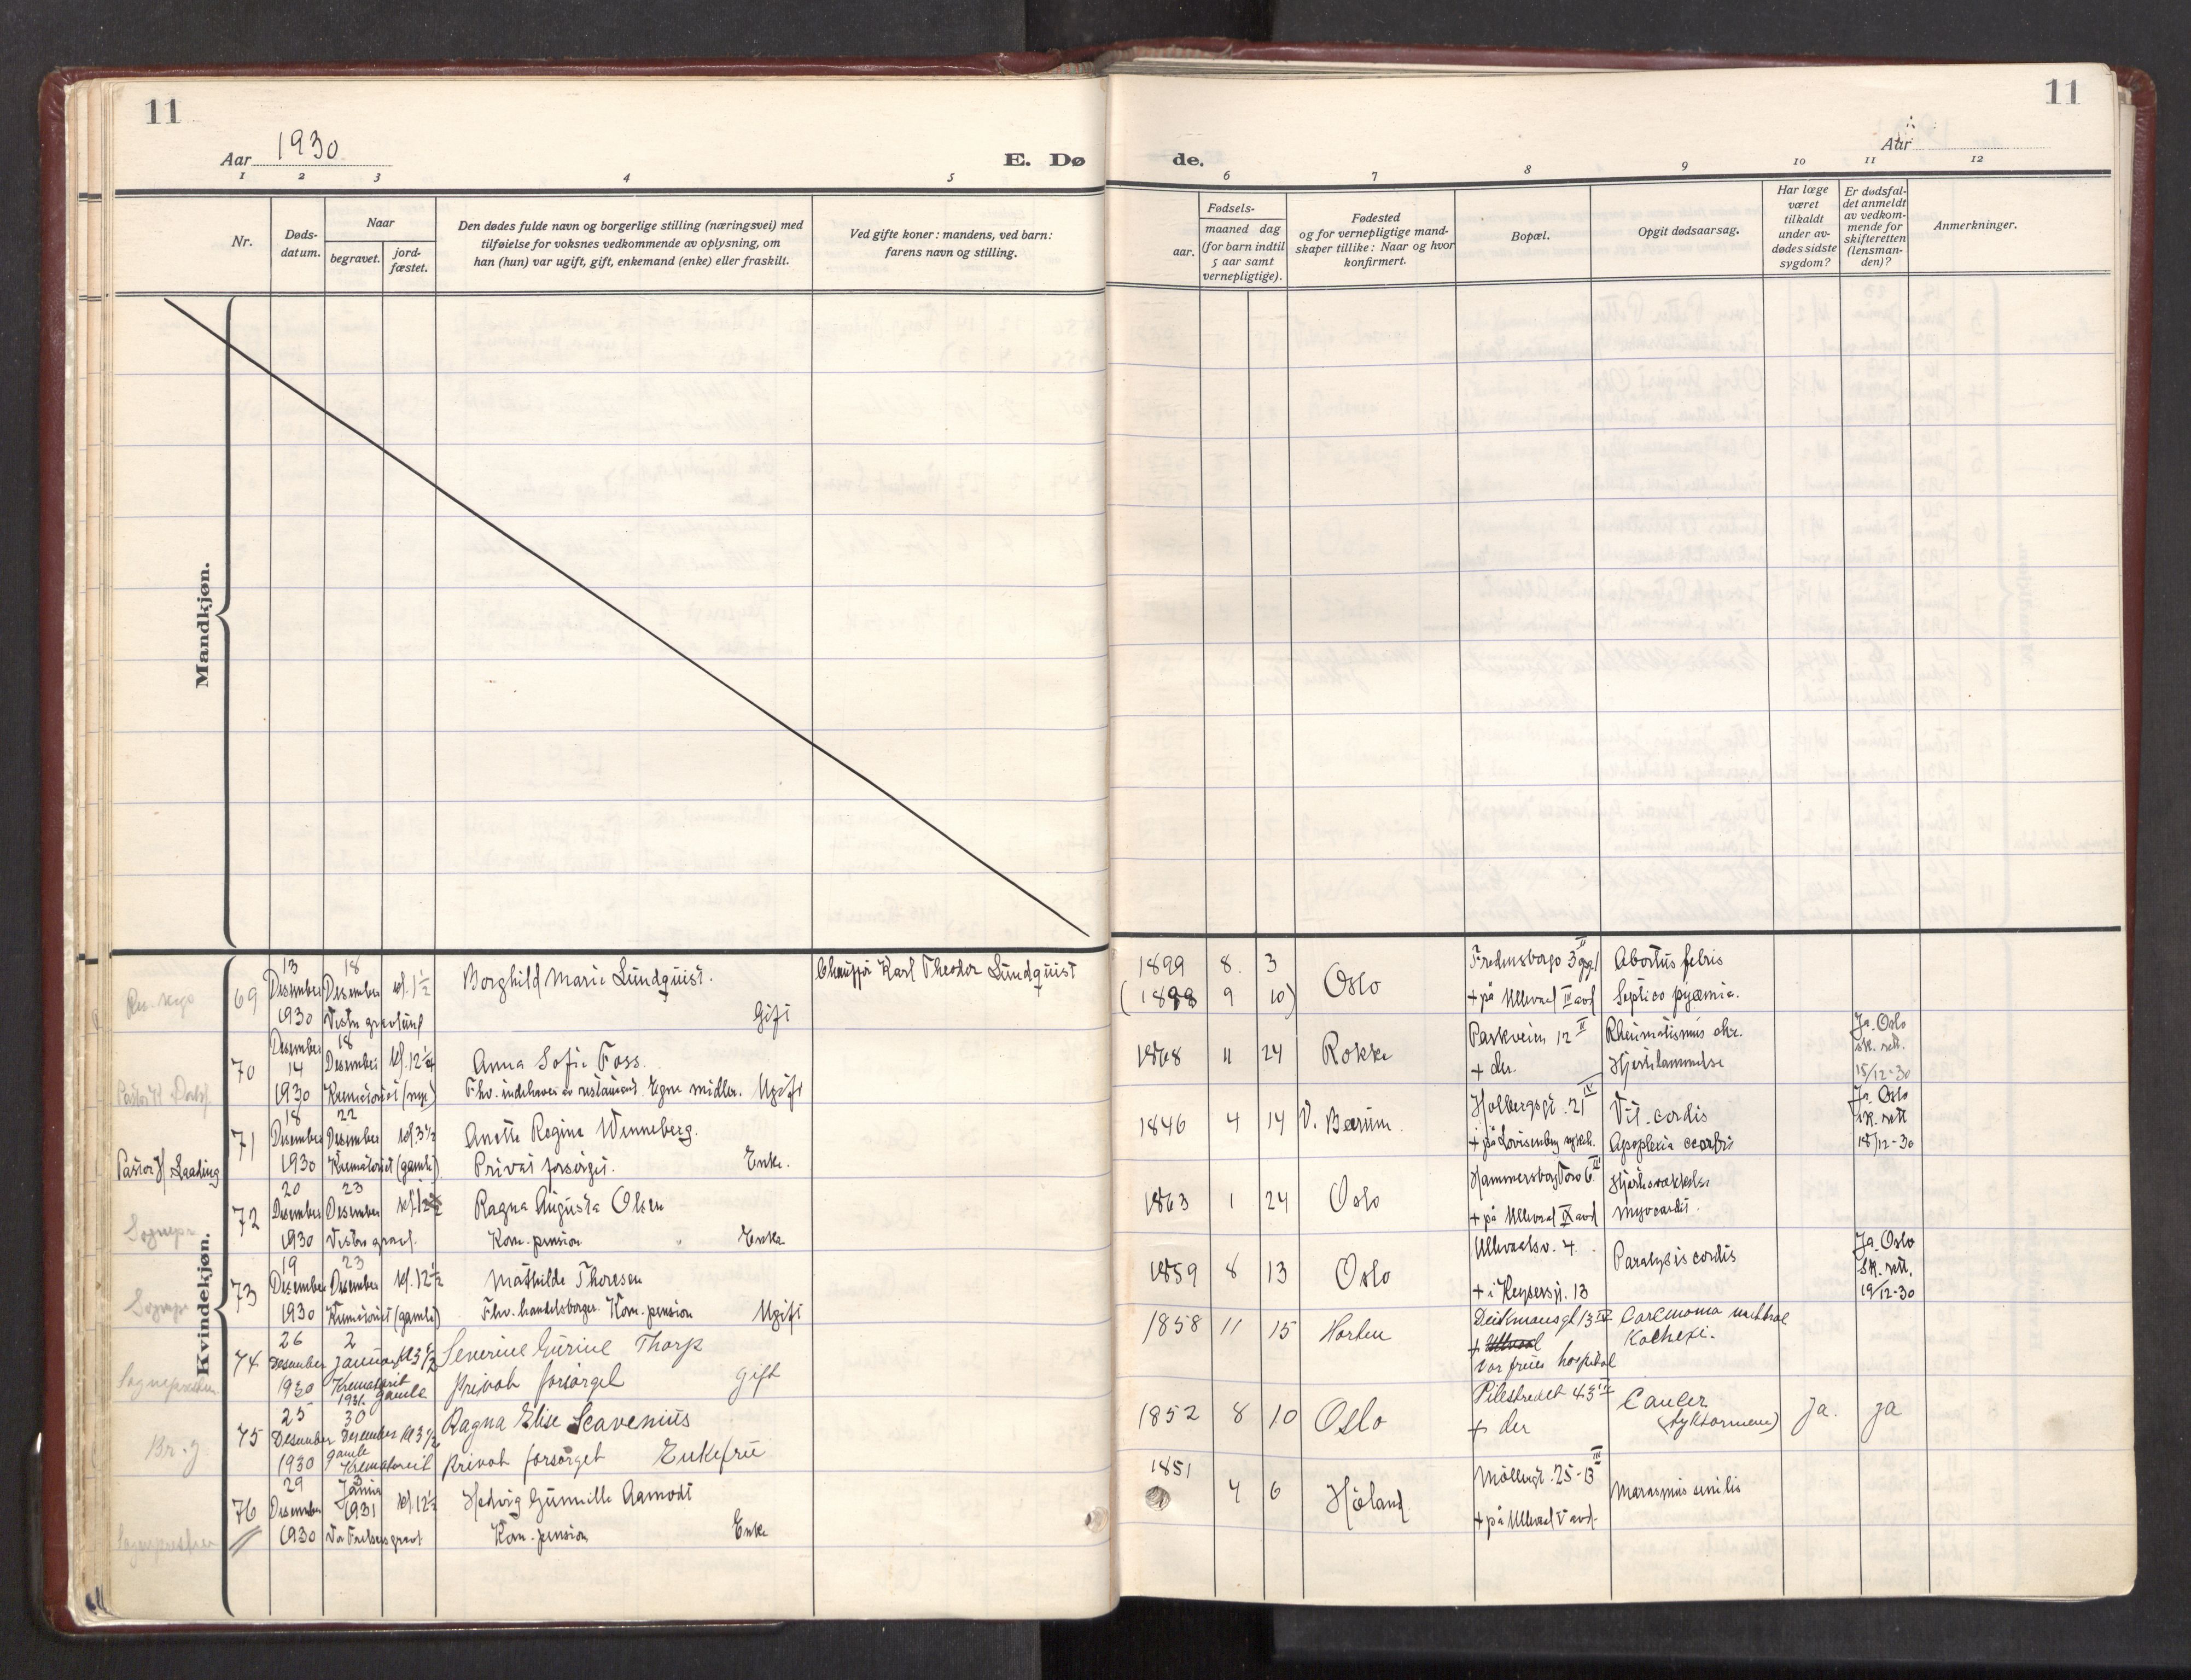 11
11
Aar 1930
E. Dø
de.
Aar
1 2 3 4 5 6 7 8 9 10 11 12
Nr.
Døds-
datum.
Naar
begravet.
jord-
fæstet.
Den dødes fulde navn og borgerlige stilling (næringsvei) med
tilføielse for voksnes vedkommende av oplysning, om
han (hun) var ugift, gift, enkemand (enke) eller fraskilt.
Ved gifte koner: mandens, ved barn:
farens navn og stilling.
Fødsels-
aar.
maaned dag
(for barn indtil
5 aar samt
vernepligtige).
Fødested
og for vernepligtige mand-
skaper tillike: Naar og hvor
konfirmert.
Bopæl.
Opgit dødsaarsag.
Har læge
været
tilkaldt
under av-
dødes sidste
sygdom?
Er dødsfal-
det anmeldt
av vedkom-
mende for
skifteretten
(lensman-
den)?
Anmerkninger.
Mandkjøn.
Kvindekjøn.
69
13
Desember
1930
18
Desember
Vestre gravlund
kl. 1 1/2
Borghild Marie Lundquist.
Gift
Chauffør Karl Theodor Lundquist
1899 8. 3
(1898 9 10)
Oslo
Fredensborgv 3
+ på Ullevaal III avd
Abortus febris
Septico pyæmia.
70
Desember
14
1930
18
Desember
Krematoriet (nye)
Anna Sofie Foss.
Fhv. indehaver av restaurant. Egne midler. Ugift
1868 11 24
Rokke
Parkveien 12 II
+ der.
Rheumatismus chr.
Hjertelammelse
Ja. Oslo
sk. rett.
15/12-30
Pastor H. Laading
71
18
Desember
1930
22
Desember
Krematoriet (gamle)
kl. 3 1/2
Anette Regine Wenneberg.
Privat forsørget. Enke.
1846 4 14
V. Bærum.
Holbergsgt. 21 IV
+ på Lovisenberg sykeh.
Vit. cordis
Apoplexia cerebri
Ja. Oslo
sk. rett
18/12-30
Sognepr.
72
20
Desember
1930
23
Desember
Vestre gravl.
Ragna Augusta Olsen
Kom. pension Enke
1863 1 24
Oslo
+ på Ullevaal IX avd
Hjertesvækkelse
Myocardit.
Sognepr
73
19
Desember
1930
23
Desember
Krematoriet (gamle)
kl. 12 1/2
Mathilde Thoresen
Fhv. handelsborger. Kom. pension Ugift
1859 8 13
Oslo
Ullevaalsv. 4.
+ i Keysersgt. 13
Paralysis cordis
Ja. Oslo
sk. rett.
19/12-30
Sognepresten
74
26
Desember
1930
2
Januar
Krematoriet
1931 gamle
Severine Gurine Thorp
Privat forsørget gift
1858 11 15
Horten
Deikmansgt 13 IV
+
Vor frues hospital
Kachexi.
Br. g.
75
25
Desember
1930
30
Desember
gamle
Krematoriet
kl 3 1/2
Ragna Elise Scavenius
Privat forsørget Enkefrue
1852 8 10
Oslo
Pilestredet 43 IV
+ der
Cancer
(tyktarmene)
Ja.
ja
Sognepresten
76
29
Desember
1930
Januar
1931
Vor Frelsers gravl
kl. 12 1/2
Hedvig Gunnille Aamodt
Kom. pension Enke
1851
4 6
Høland
Møllergt. 25-13 III
+ på Ullevaal V avd.
Marasmus senilis